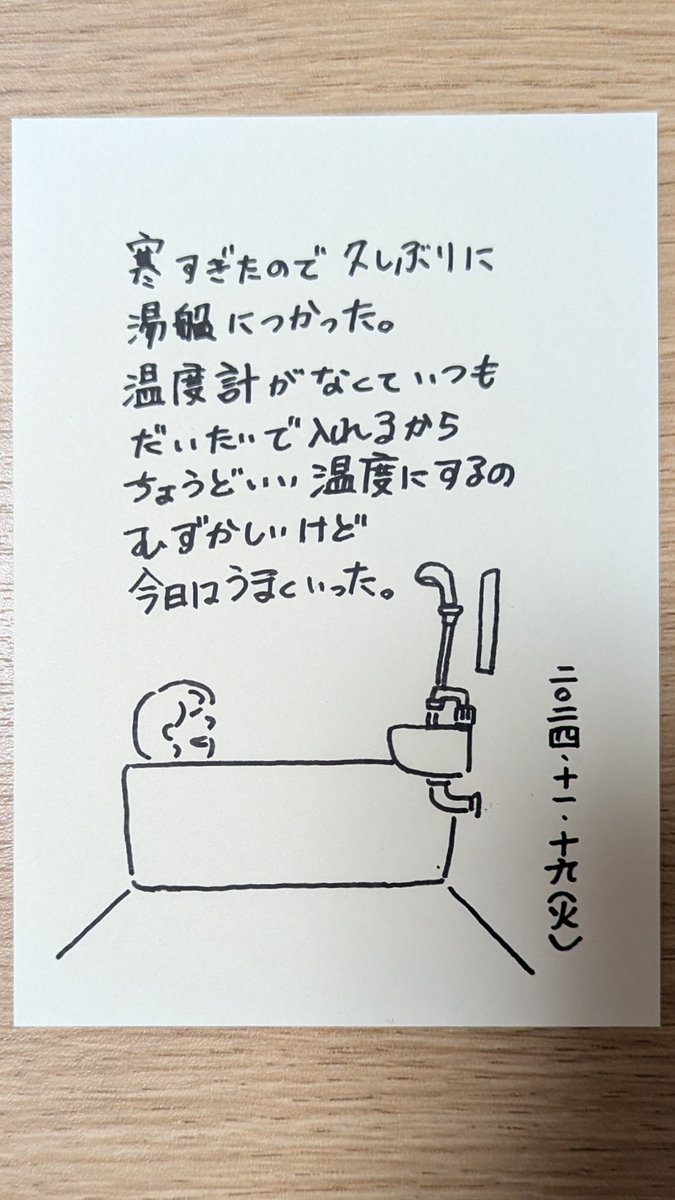 寒すぎたので久しぶりに
湯船につかった。
温度計がなくていつも
だいたいで入れるから
ちょうどいい温度にするの
むずかしいけど
今日はうまくいった。
二〇二四・十一・十九(火)